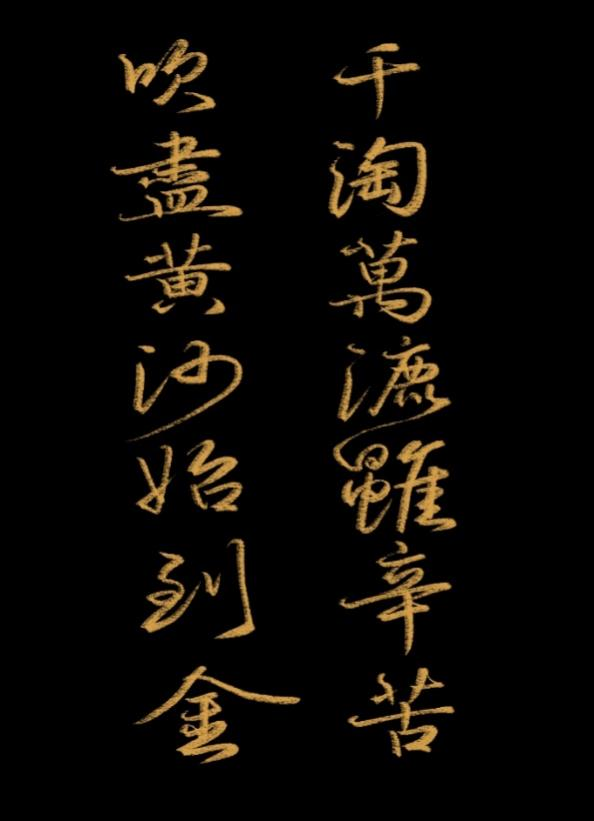 千淘萬漉雖辛苦
吹盡黄沙始到金